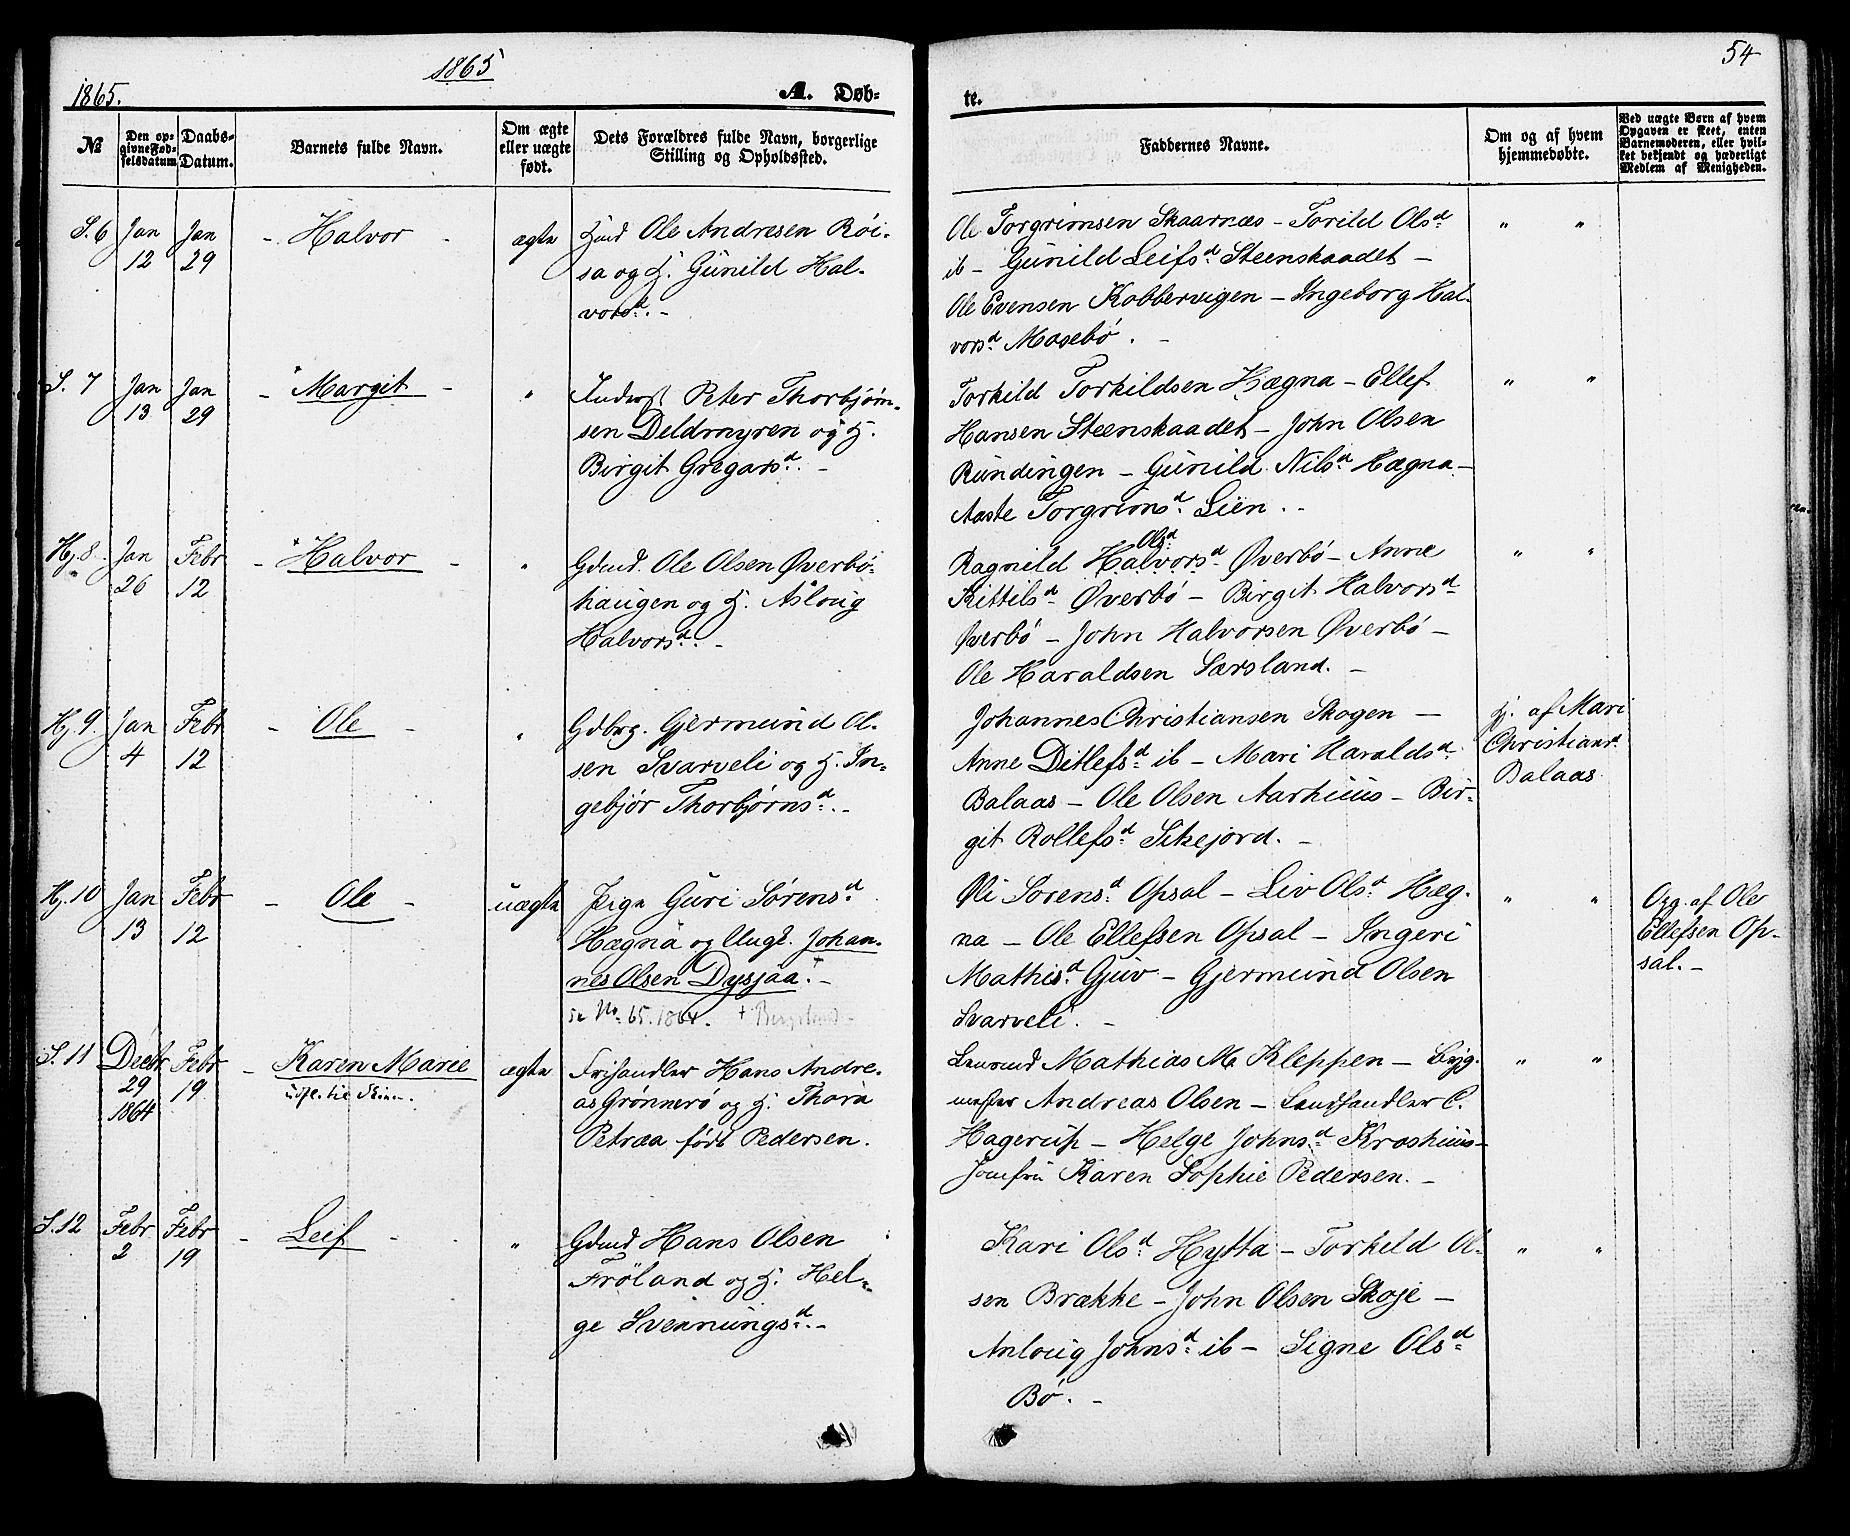 1865
54
1865.
A. Døb-
te.
№
Den op-
givne Fød-
selsdatum
Daabs-
Datum.
Barnets fulde Navn.
Om ægte
eller uægte
født.
Dets Forældres fulde Navn, borgerlige
Stilling og Opholdssted.
Faddernes Navne.
Om og af hvem
hjemmedøbte.
Ved uægte Børn af hvem
Opgaven er skeet, enten
Barnemoderen, eller hvil-
ket bekjendt og hæderligt
Medlem af Menigheden.
S. 6
Jan
12
Jan
29
- Halvor -
ægte
Ole Andresen Röi-
sa og H. Gunild Hal-
vorsd. -
Ole Torgrimsen Skaarnæs - Torild Olsd
ib - Gunild Leifsd Steenskaadet -
Ole Evensen Kobbervigen - Ingeborg Hal-
vorsd Mosebö. -
" "
S. 7
Jan
13
Jan
29
- Margit -
"
Inderst Peter Thorbjörn-
sen Deldmyren og H.
Birgit Gregarsd. -
Torkild Torkildsen Hægna - Ellef
Hansen Steenskaadet - John Olsen
Rundingen - Gunild Nilsd Hægna -
Aaste Torgrimsd Lien. -
" "
Hj. 8.
Jan
26
Febr
12
- Halvor -
"
Gdmd. Ole Olsen Øverbö-
haugen og H. Asloug
Halvorsd. -
Olsd
Ragnild Halvorsd Øverbö - Anne
Kittilsd Øverbö - Birgit Halvorsd
Øverbö - John Halvorsen Øverbö -
Ole Haraldsen Særsland. -
" "
Hj. 9.
Jan
4
Febr
12
- Ole -
"
Gdbrg. Gjermund Ol-
sen Svarveli og H. In-
gebjör Thorbjørnsd. -
Johannes Christiansen Skogen -
Anne Ditlefsd ib - Mari Haraldsd
Balaas - Ole Olsen Aarhuus - Bir-
git Rollefsd Sitsejord. -
Hj. af Mari
Christiansd
Balaas
Hj. 10
Jan
13
Febr
12
- Ole -
uægte
Pige Guri Sørensd
Hægna og Ungk. Johan-
nes Olsen Dysjaa. -
se No 65. 1864. +
Øli Sorensd Opsal - Liv Olsd Hæg-
na - Ole Ellefsen Opsal - Ingeri
Mathisd Gjuv - Gjermund Olsen
Svarveli. -
" "
Opg. af Ole
Ellefsen Op-
sal. -
S. 11
Decbr
29
1864
Febr
19
- Karen Marie
ægte
Frihandler Hans Andre-
as Grönnerö og H. Thora
Petræa født Pedersen.
Lensmd Mathias M. Kleppen - Byg-
mester Andreas Olsen - Landhandler C.
Hagerup - Helge Johnsd Kroshuus -
Jomfru Karen Sophie Pedersen. -
" "
S. 12
Febr
2
Febr
19
- Leif -
"
Gdmd Hans Olsen
Fröland og H. Hel-
ge Svennungsd. -
Kari Olsd Hytta - Torkild Ol-
sen Brække - John Olsen Skoje -
Anloug Johnsd ib - Signe Olsd
Bö. -
" "